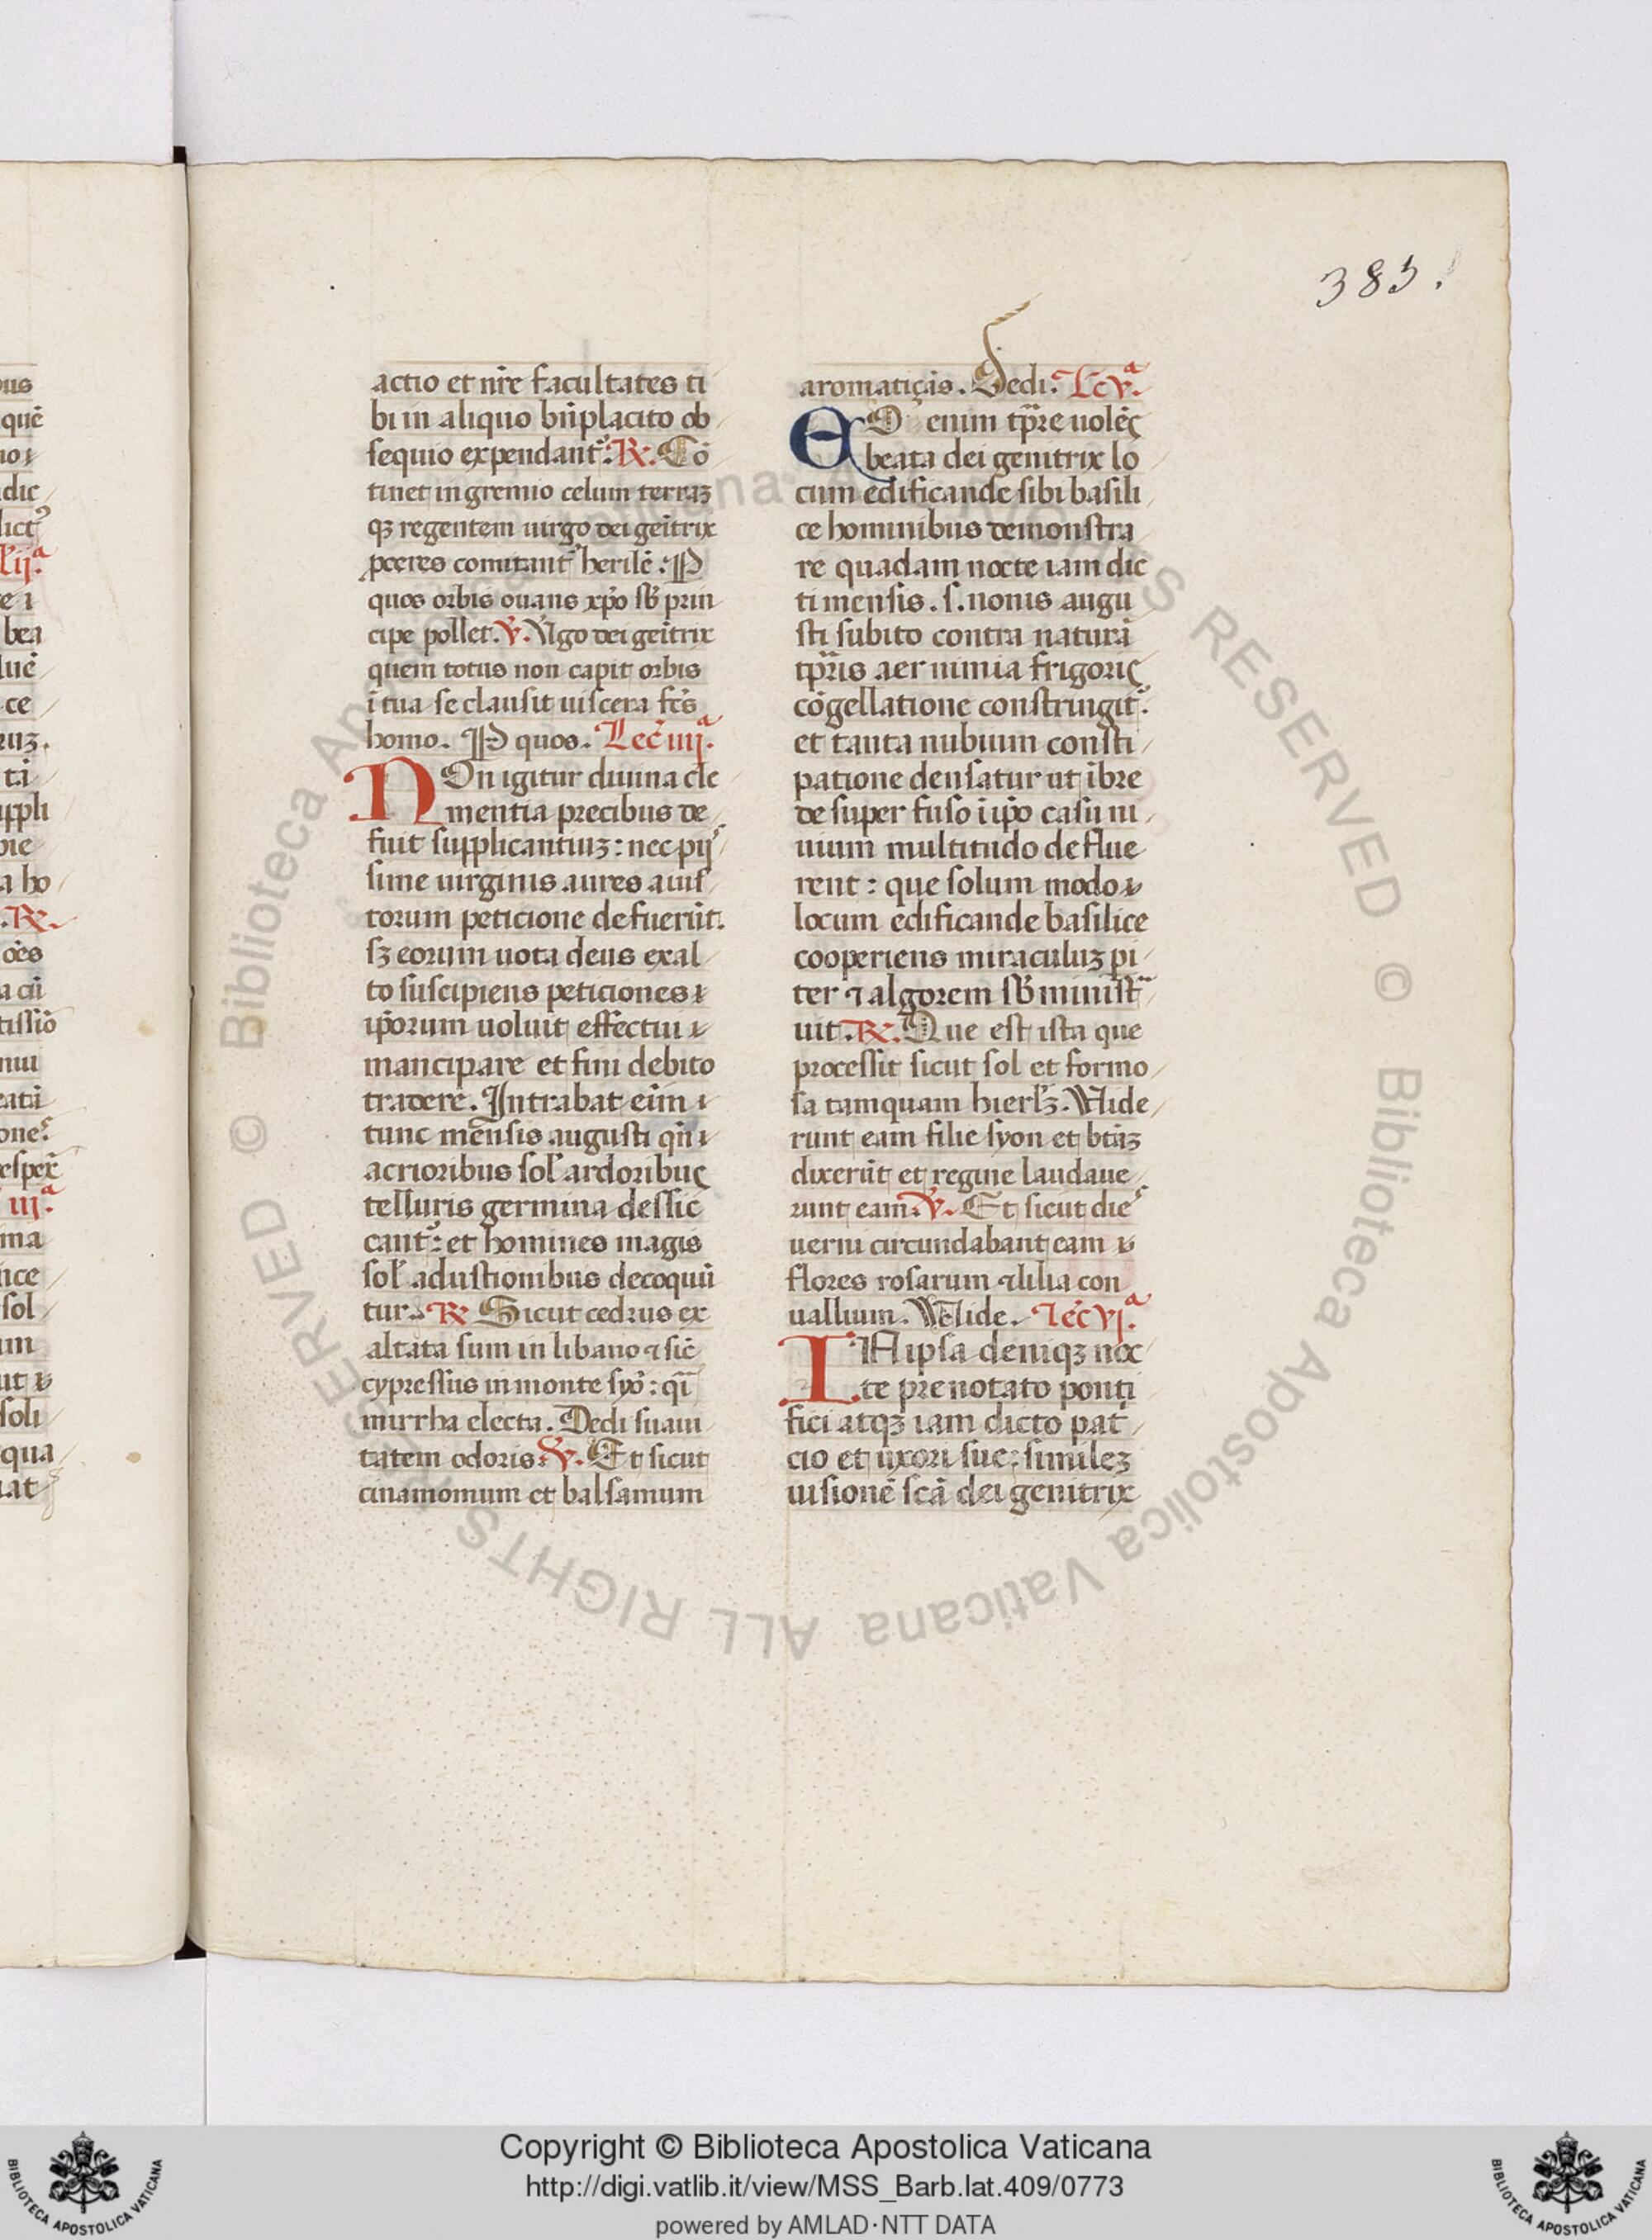 383.
actio et nr̄e facultates ti
bi in aliquo bn̄placito ob
sequio expendant᷒. R. Cō
tinet in gremio celum terraꝫ
qꝫ regentem uirgo dei geītrix
ꝓceres comitant᷒ herilē. P
quos orbis ouans xp̄o sb̄ prin
cipe pollet. V. V̓go dei geītrix
quem totus non capit orbis
ī tua se clausit uiscera fc̄s
homo. P quos. Lec̄ iiijᵃ.
NOn igitur diuina cle
mentia precibus de
fuit supplicantiuꝫ: nec pij
sime uirginis aures auis
torum peticione defuerūt.
sꝫ eorum uota deus exal
to suscipiens peticiones
ip̄orum uoluit effectui
mancipare et fini debito
tradere. Intrabat eīm
tunc mensis augusti qn̄
acrioribus sol̓ ardoribus
telluris germina dessic
cant᷒: et homines magis
sol̓ adustionibus decoquū
tur. R Sicut cedrus ex
altata sum in libano ⁊ sic̄
cypressus in monte syō: qī
mirrha electa. Dedi suaui
tatem odoris. V. Et sicut
cinamomum et balsamum
aromatiçās. Dedi. Lc̄ vᵃ.
EO enim tp̄re uolēs
beata dei genitrix lo
cum edificande sibi basili
ce hominibus demonstra
re quadam nocte iam dic
ti mensis. s. nonis augu
sti subito contra naturā
tp̄ris aer nimia frigoris
cōgellatione constringit᷒.
et tanta nubium consti
patione densatur ut ībre
de super fuso ī ip̄o casu ni
uium multitudo deflue
rent: que solum modo
locum edificande basilice
cooperiens miraculuꝫ pi
ter ⁊ algorem sb̄ministᵃ
uit. R. Que est ista que
processit sicut sol et formo
sa tamquam hierl̓ꝫ. Vide
runt eam filie syon et btāꝫ
dixerūt et regine laudaue
runt eam. V. Et sicut dies
uerni circundabant eam
flores rosarum ⁊ lilia con
uallium. Vide. Lec̄ vjᵃ.
IN ipsa deniqꝫ noc
te prenotato ponti
fici atqꝫ iam dicto pat
cio et uxori sue: simileꝫ
uisionē sc̄a dei genitrix
Copyright © Biblioteca Apostolica Vaticana
http://digi.vatlib.it/view/MSS_Barb.lat.409/0773
powered by AMLAD·NTT DATA
BIBLIOTECA APOSTOLICA VATICANA
BIBLIOTECA APOSTOLICA VATICANA
© Biblioteca Apostolica Vaticana ALL RIGHTS RESERVED © Biblioteca Apostolica Vaticana ALL RIGHTS RESERVED